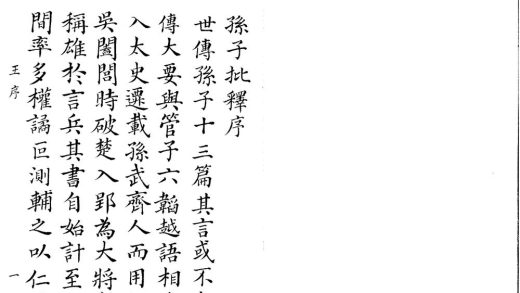 孫子批釋序
世傳孫子十三篇其言或不
傳大要與管子六韜越語相
入太史遷載孫武齊人而用
吳闔閭時破楚入郢為大將
稱雄於言兵其書自始計至
間率多權譎叵測輔之以仁
王序 一